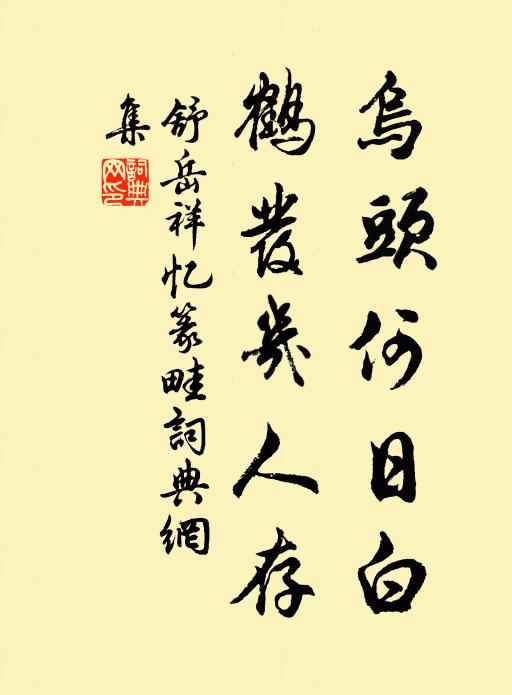 烏頭何日白
鶴發幾人存
舒岳祥忆篆畦詞典網
集
詞典网印